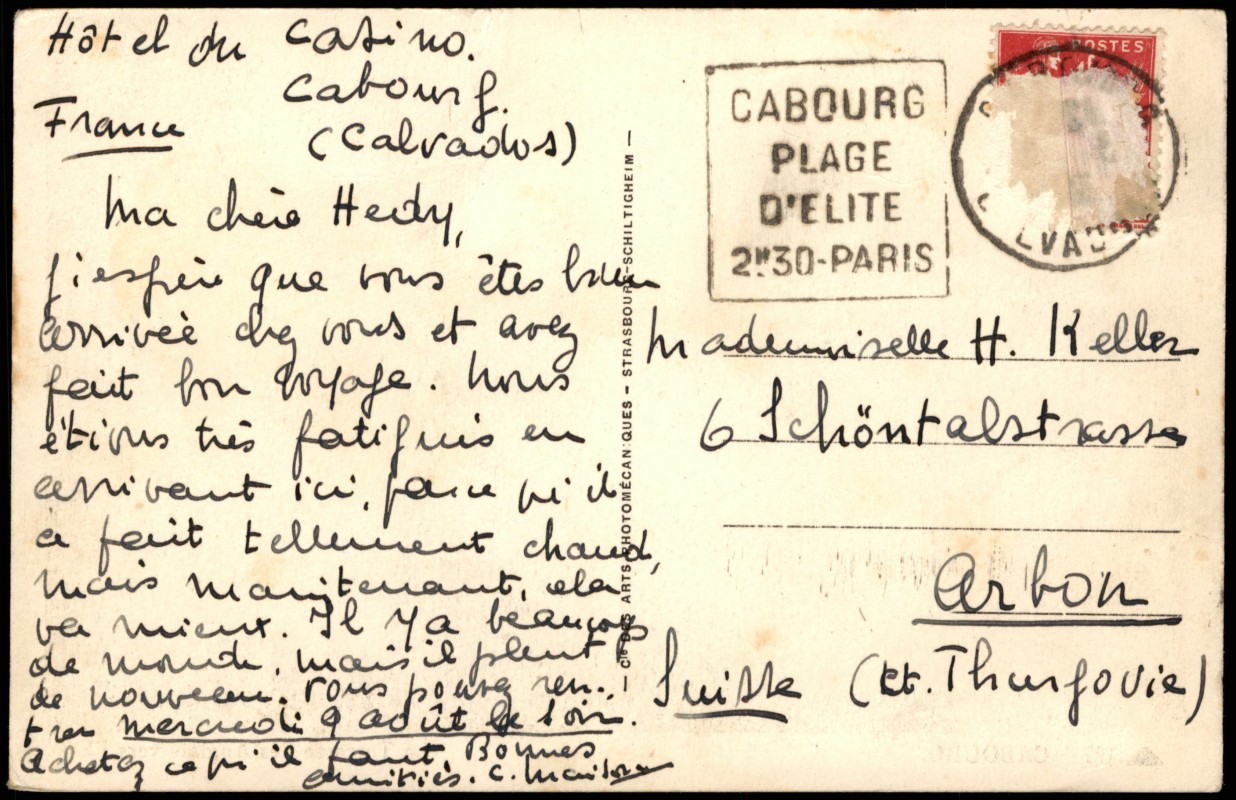 Hôtel du Casino.
Cabourg.
France (Calvados)
Ma chère Hedy,
j'espère que vous êtes bien
arrivée chez vous et avez
fait bon voyage. Nous
étions très fatigués en
arrivant ici, parce qu'il
a fait tellement chaud,
mais maintenant, cela
va mieux. Il y a beaucoup
de monde, mais il pleut
de nouveau. Vous pouvez ren-
trer mercredi 9 août le soir.
Achetez ce qu'il faut. Bonnes
amitiés. C.
— Cie DES ARTS PHOTOMÉCANIQUES – STRASBOURG-SCHILTIGHEIM —
CABOURG
PLAGE
D'ELITE
2H30-PARIS
POSTES
LVAD
Mademoiselle H. Keller
6 Schöntalstrasse
Arbon
Suisse (ct. Thurgovie)
CABOURG